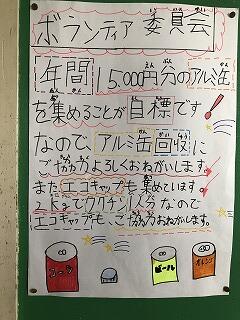 ボランティア委員会
年間15.000円分のアルミ缶
を集めることが目標です!
なので、アルミ缶回収に
ご協力よろしくおねがいします。
またエコキャップも集めています。
2Kgでワクチン1人分なので
エコキャップも、ご協力おねがいします。
コーラ
ビール
オレンジ